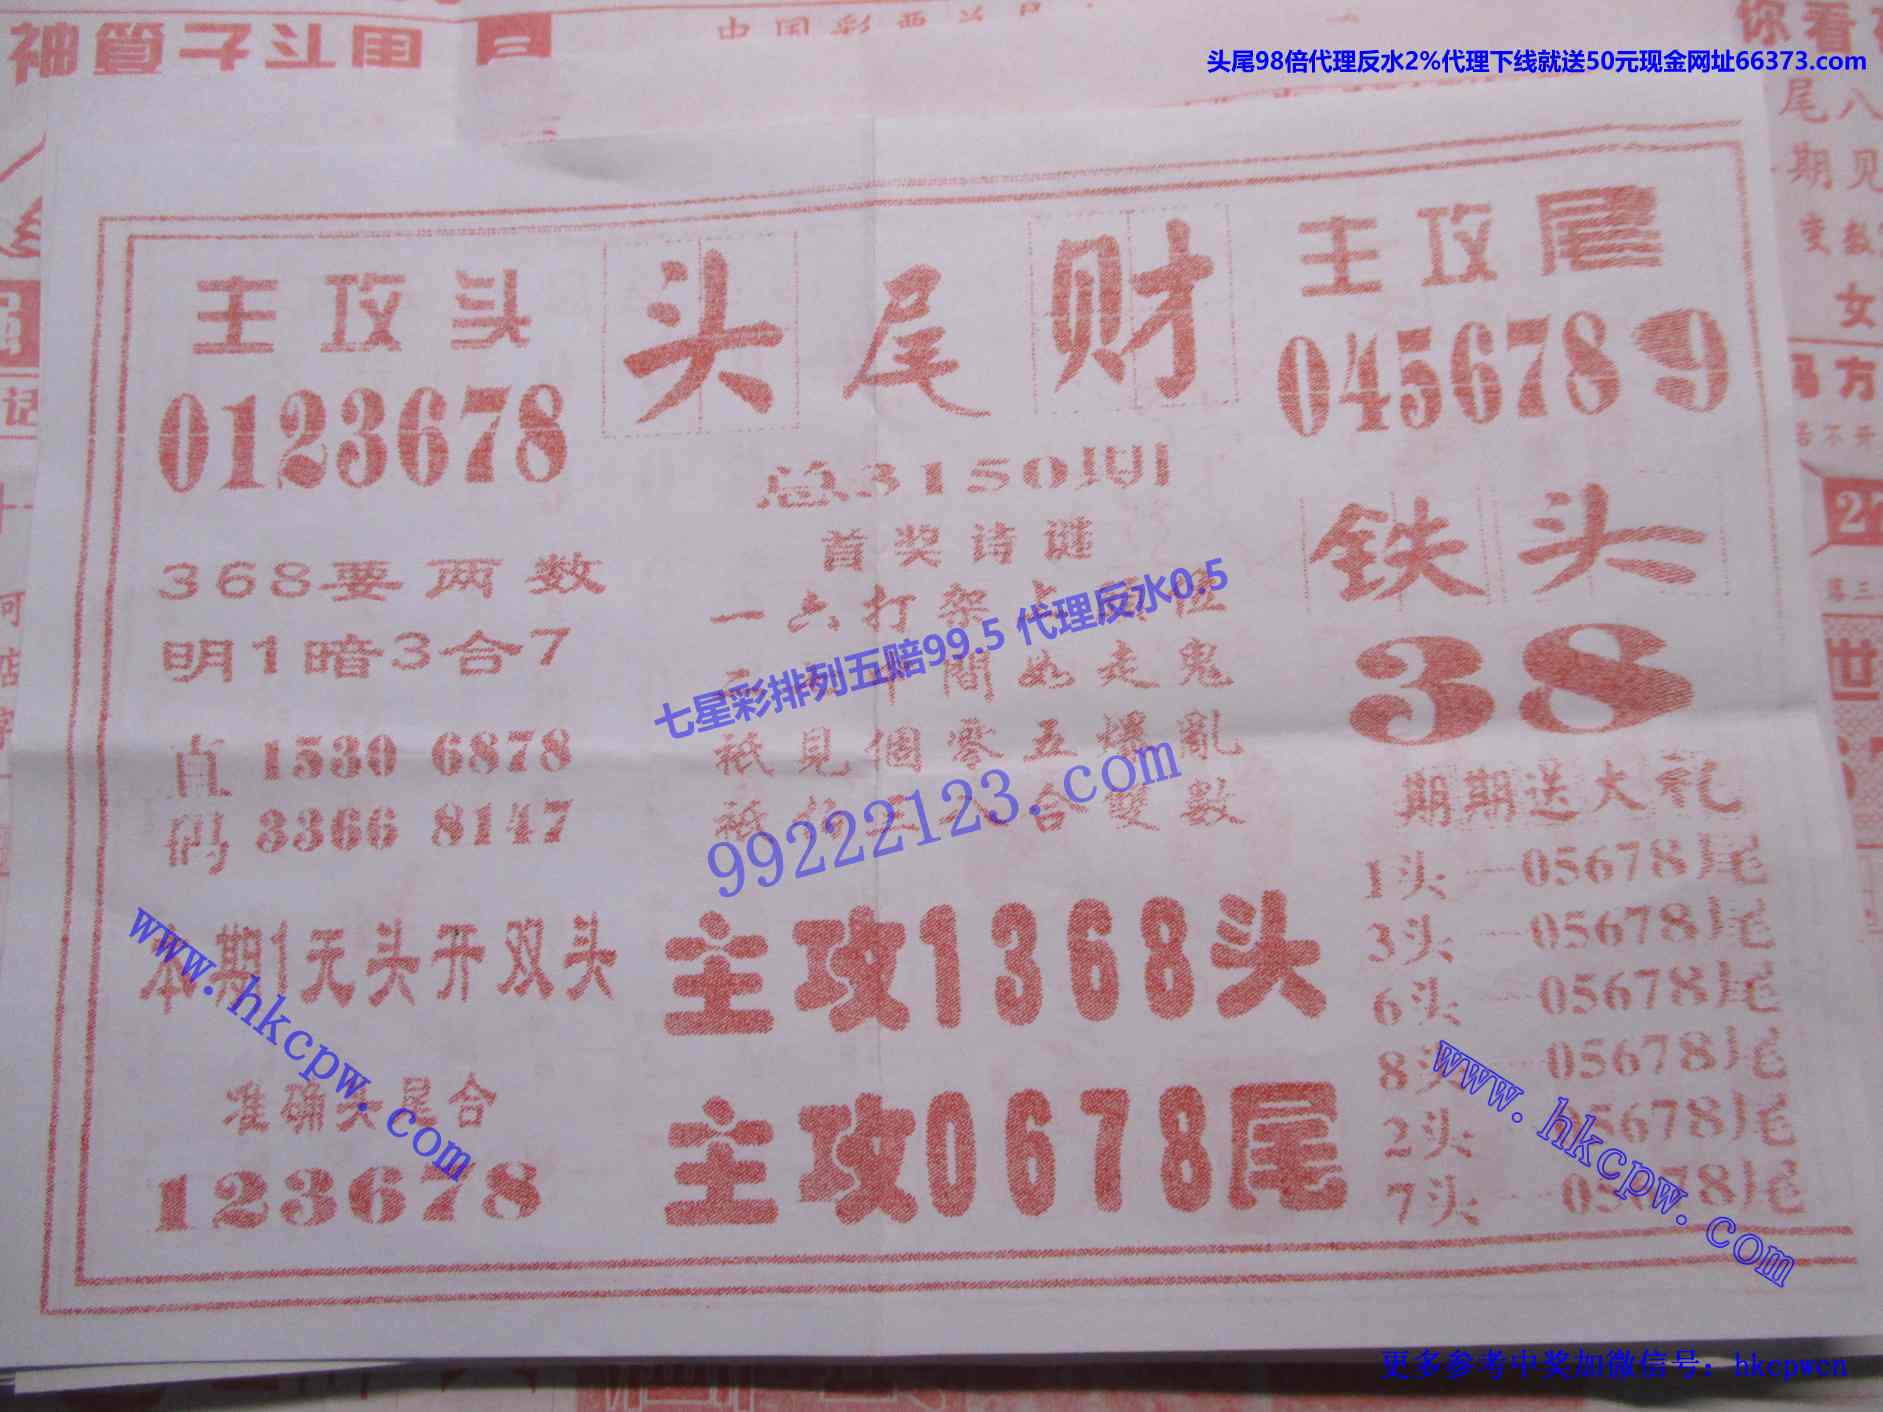 神管子斗围
中国彩票
头尾98倍代理反水2%代理下线就送50元现金网址66373.com
你看
尾八
期见
变数
女
主攻头
0123678
头尾财
主攻尾
0456789
总3150期
首奖诗谜
一六打架
中間如走鬼
祗見個零五爆亂
祗 合雙數
七星彩排列五赔99.5 代理反水0.5
99222123.com
368要两数
明1暗3合7
直 1530 6878
码 3366 8147
铁头
38
期期送大礼
1头—05678尾
3头—05678尾
6头—05678尾
8头—05678尾
2头—05678尾
7头—05678尾
本期1元头开双头
准确头尾合
123678
主攻1368头
主攻0678尾
www.hkcpw.com
www.hkcpw.com
更多参考中奖加微信号：hkcpwcn